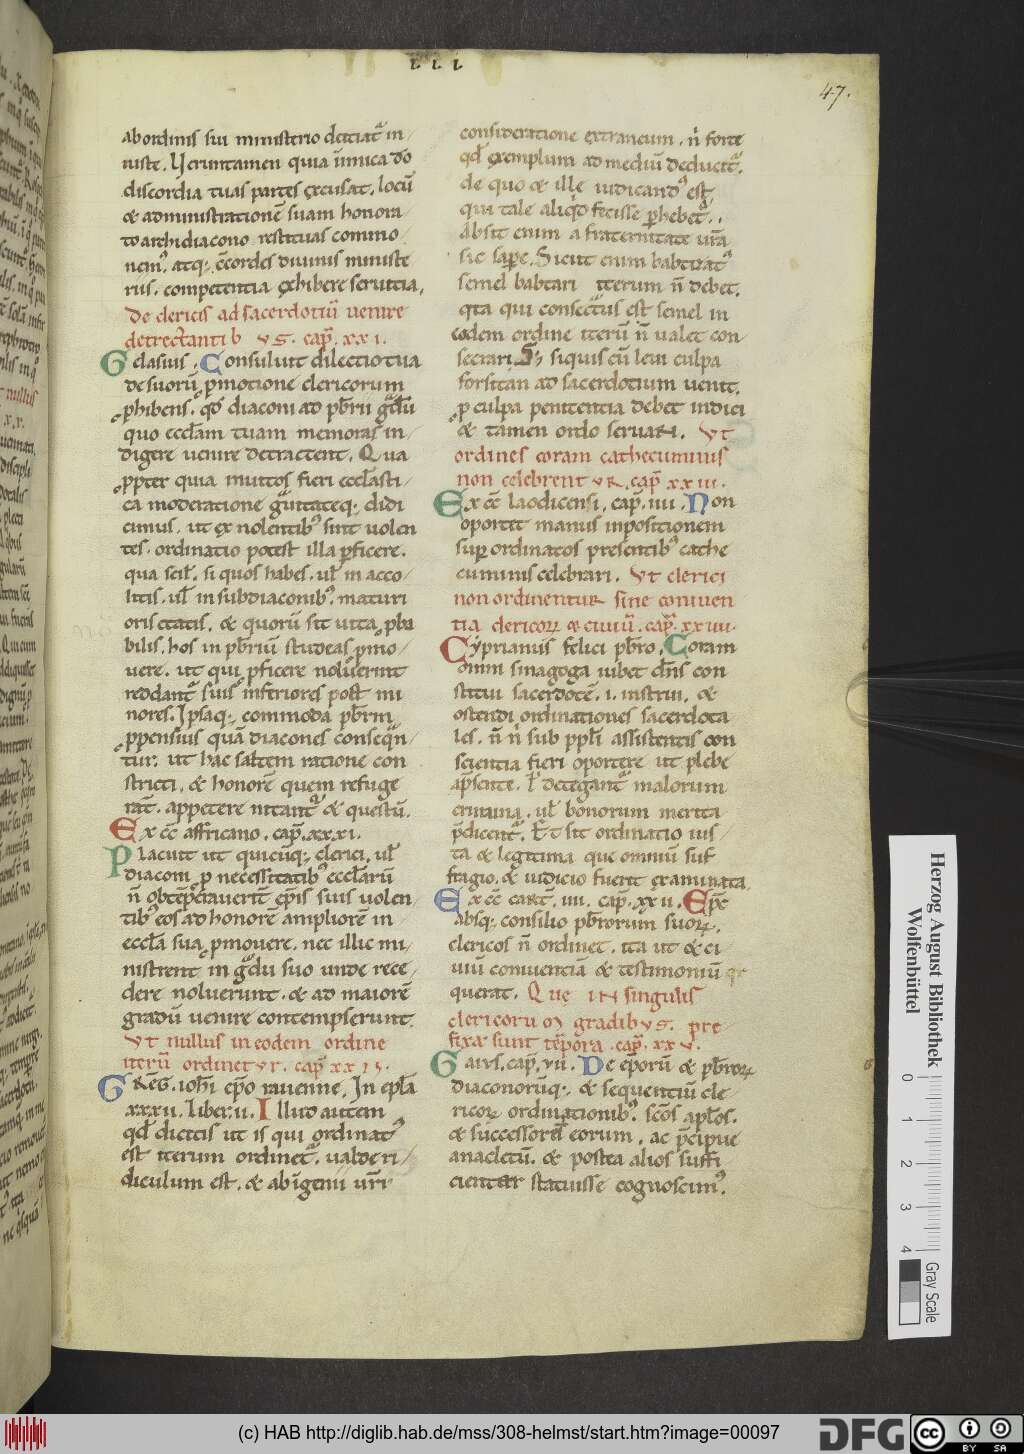 I. I. I.
47.
ab ordinis sui ministerio deiciat᷑ in-
iuste. Veruntamen quia inimica dō
discordia tuas partes excusat. locū
& administrationē suam honora-
to archidiacono restituas commo-
nem᷒. atq; cēcordes diuinis ministe-
riis. competentia exhibere seruitia.
De clericis ad sacerdotiū uenire
detrectantib VS. cap̄. XXI.
Gelasius. Consuluit dilectio tua
de suorū ꝓmotione clericorum
ꝓhibens. qd̄ diaconi ad pb̄rii gᷓdū
quo eccl̄am tuam memoras in-
digere uenire detractent. Qua
ꝓpter quia inuitos fieri eccl̄asti-
ca moderatione gᷓuitateq; didi-
cimus. ut ex nolentib᷒ sint uolen-
tes. ordinatio potest illa ꝑficere.
qua scil̄. si quos habes. ul̄ in acco-
litis. ul̄ in subdiaconib᷒. maturi-
oris etatis. & quorū sit uita ꝓba-
bilis. hos in pb̄riū studeas ꝓmo-
uere. ut qui ꝓficere noluerint
reddant᷑ suis inferiores post mi-
nores. Ipsaq; commoda pb̄rm
ꝓpensius quā diacones conseqn̄-
tur. ut hac saltem ratione con-
stricti. & honorē quem refuge-
rāt. appetere nitant᷑ & questū.
Ex cc̄ affricano. cap̄. XXXI.
Placuit ut quicūq; clerici. ul̄
diaconi ꝓ necessitatib᷒ eccl̄arū
n̄ obtēꝑauerint ep̄is suis uolen-
tib᷒ eos ad honorē ampliorē in
eccl̄a sua ꝓmouere. nec illic mi-
nistrent in gᷓdu suo unde rece-
dere noluerunt. & ad maiorē
gradū uenire contempserunt.
Vt nullus in eodem ordine
iterū ordinetur. cap̄ XXII.
GREG. ioh̄i ep̄o rauenne. In ep̄la
xxxii. Liber. ii. Illud autem
qd̄ dicitis ut is qui ordinat᷒
est iterum ordinet᷑. ualde ri-
diculum est. & ab ingenii ur̄i
consideratione extraneum. n̄ forte
qd̄ exemplum ad mediū deducit᷑.
de quo & ille iudicand᷒ est.
qui tale aliqd̄ fecisse ꝑhebet᷑.
Absit enim a fraternitate ur̄a
sic saꝑe. Sicut enim babtizat᷒
semel babtari iterum n̄ debet.
ita qui consecratus est semel in
eodem ordine iterū n̄ ualet con-
secrari. S; siquis cū leui culpa
forsitan ad sacerdotium uenit.
ꝓ culpa penitentia debet indici
& tamen ordo seruari. Vt
ordines coram cathecuminis
non celebrentur. cap̄ XXIII.
Ex cc̄ laodicensi. cap̄. iiii. Non
oportet manus inpositionem
suꝑ ordinatos presentib᷒ cathe-
cuminis celebrari. Vt clerici
non ordinentur sine conuen-
tia clericoꝝ & ciuiū. cap̄. XXIIII.
Cyprianus felici pb̄ro. Coram
omni sinagoga iubet dn̄s con-
stitui sacerdotē. i. instrui. &
ostendi ordinationes sacerdota-
les. n̄ n̄ sub ppl̄i assistentis con-
scientia fieri oportere ut plebe
ap̄sente. l̄ detegant᷑ malorum
crimina. ul̄ bonorum merita
p̄dicent᷑. Et sit ordinatio ius-
ta & legitima que omniū suf-
fragio. & iudicio fuerit examinata.
Ex cc̄ cart̄. iiii. cap̄. xxii. Ep̄c
absq; consilio pb̄rorum suoꝝ.
clericos n̄ ordinet. ita ut & ci-
uiū conuencia & testimoniū
querat. Que in singulis
clericorum gradibus. pre-
fixa sunt tēpora. cap̄. XXV.
Gaius. cap̄. vii. De ep̄orū & pb̄roꝝ
diaconorūq; & sequentiū cle-
ricoꝝ ordinationib᷒. sc̄os apl̄os.
& successores eorum. ac p̄cipue
anacletū. & postea alios suffi-
cienter statuisse cognoscim᷒.
Herzog August Bibliothek
Wolfenbüttel
0 1 2 3 4
Gray Scale
(c) HAB http://diglib.hab.de/mss/308-helmst/start.htm?image=00097
DFG
cc BY SA